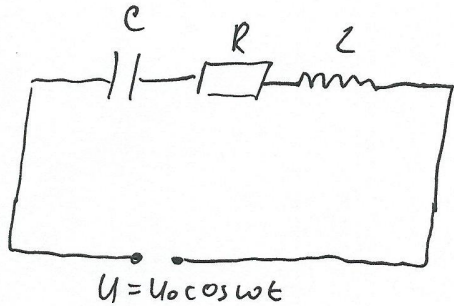 C R L
U = U₀ cos ωt